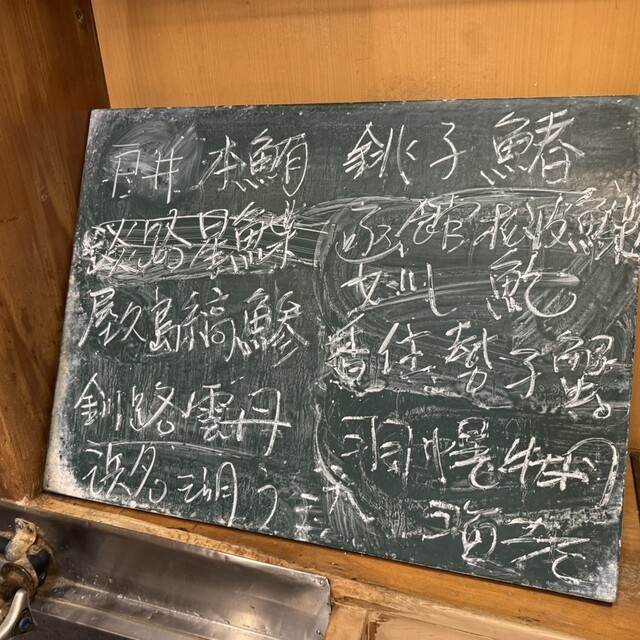 戸井 本鮪
淡路 星鰈
屋久島 縞鯵
釧路 雲丹
浜名湖
銚子 鰆
函館 松皮鰈
むし 鮑
香住 勢子蟹
羽幌 牡丹
海老